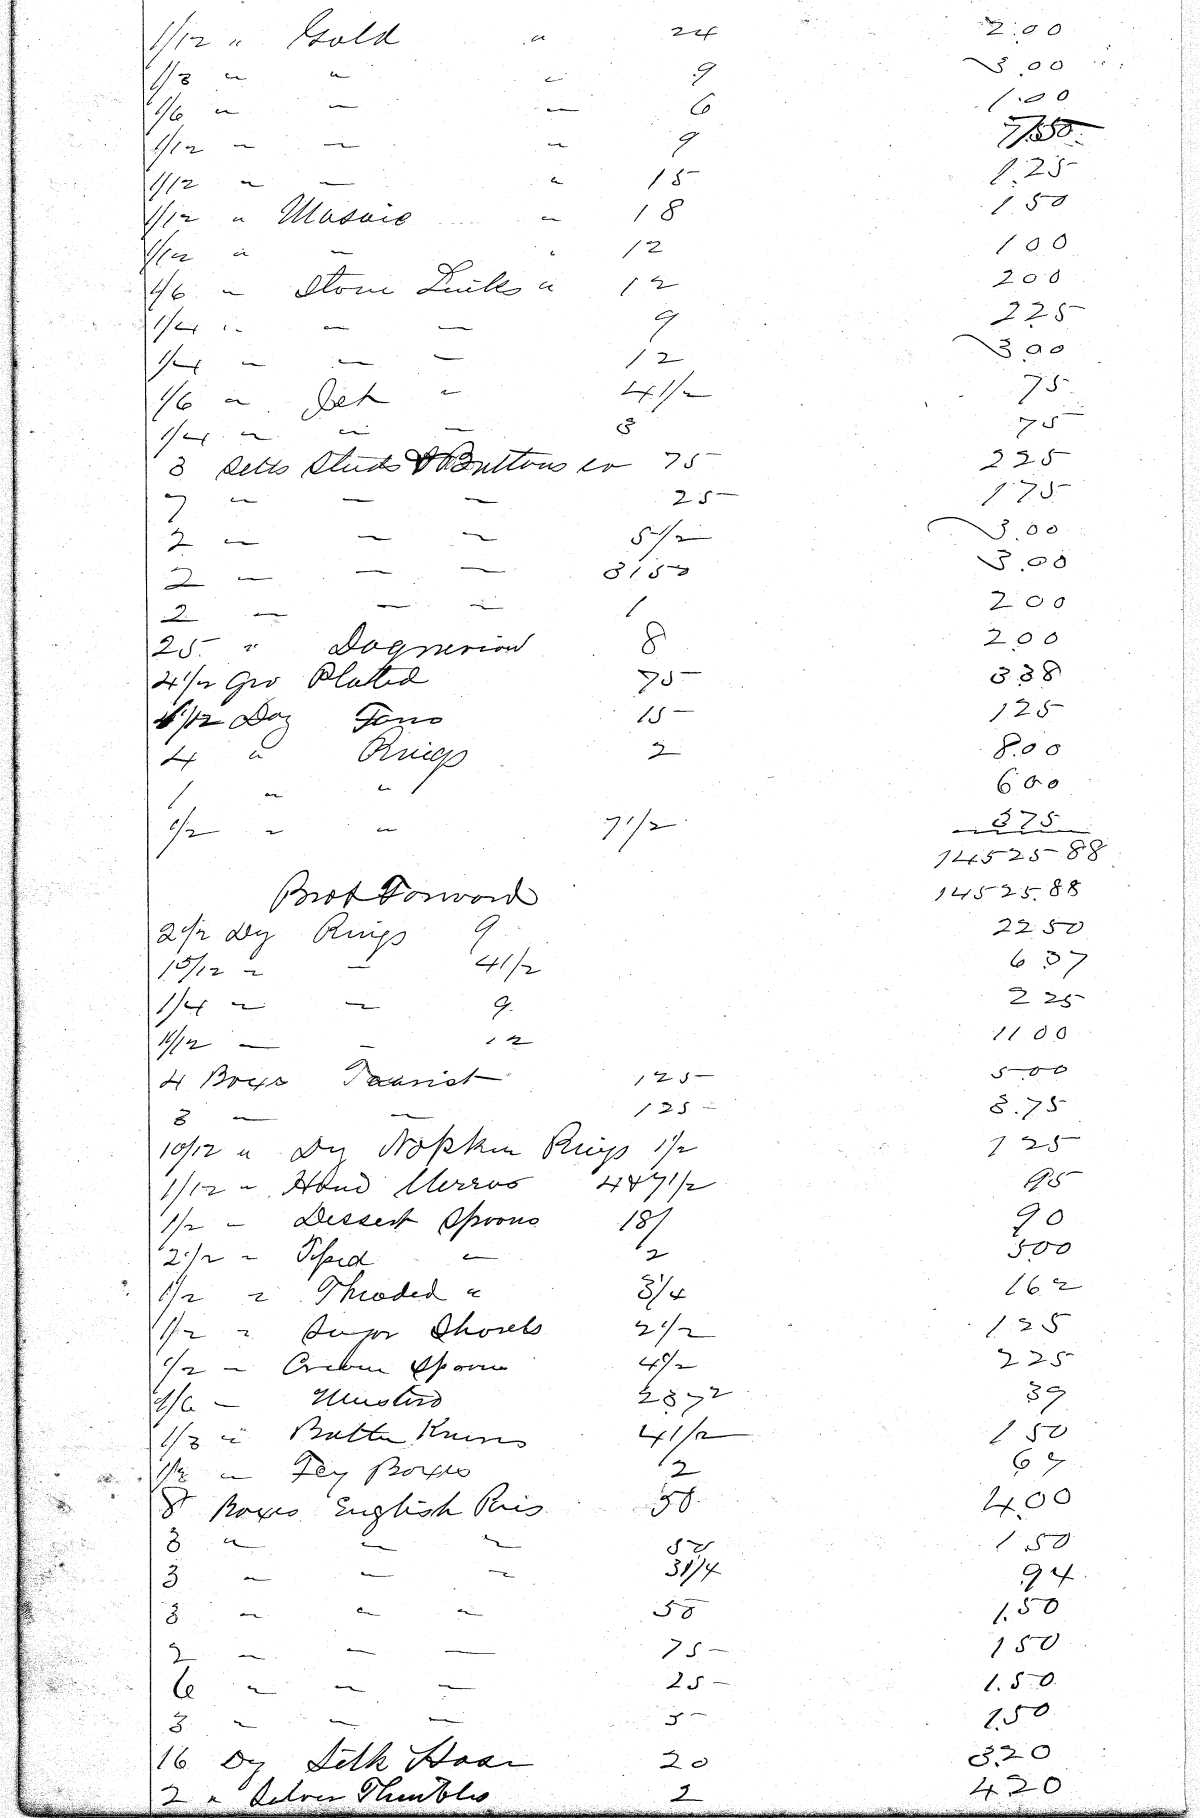 1/12 " Gold " 24 2.00
1/3 " " " 9 3.00
1/6 " " " 6 1.00
1/12 " " " 9
1/12 " " " 15 1.25
1/12 " Mosaic " 18 1 50
1/12 " " " 12 1 00
1/6 " Stone Links " 12 2 00
1/4 " " " 9 2 25
1/4 " " " 12 3.00
1/6 " Jet " 4 1/2 75
1/4 " " " 3 75
3 Setts Studs & Buttons 75 2 25
7 " " " 25 1 75
2 " " " 5 1/2 3.00
2 " " " 3.00
2 " " " 1 2 00
25 " 8 2.00
4 1/2 Gro Plated 75 3 38
1/12 Doz 15 1 25
4 " Rings 2 8.00
1 " " 6 00
1/2 " " 7 1/2 3 75
14525 88
Brot Forward 14525.88
2 1/2 Dz Rings 9 22 50
" " 4 1/2 6 37
1/4 " " 9 2 25
11/12 " " 12 11 00
4 Boxes Tourist 125 5 00
3 " " 125 3.75
10/12 " Dz Napkin Rings 1 1/2 1 25
1/12 " Hand Mirros 95
1/2 " Dessert Spoons 18/ 90
2 1/2 " " 2 5 00
1/2 " Threaded " 3 1/4 1 62
1/2 " Sugar Shovels 2 1/2 1 25
1/2 " Cream Spoons 4 1/2 2 25
1/6 " Musterd 39
1/3 " Butter Knives 4 1/2 1 50
1/3 " Boxes 2 67
8 Boxes English Pins 50 4.00
3 " " " 50 1 50
3 " " " 31 1/4 94
3 " " " 50 1.50
2 " " " 75 1 50
6 " " " 25 1.50
3 " " " 5 1.50
16 Dz Silk 20 3.20
2 " Silver Thimbles 2 4.20